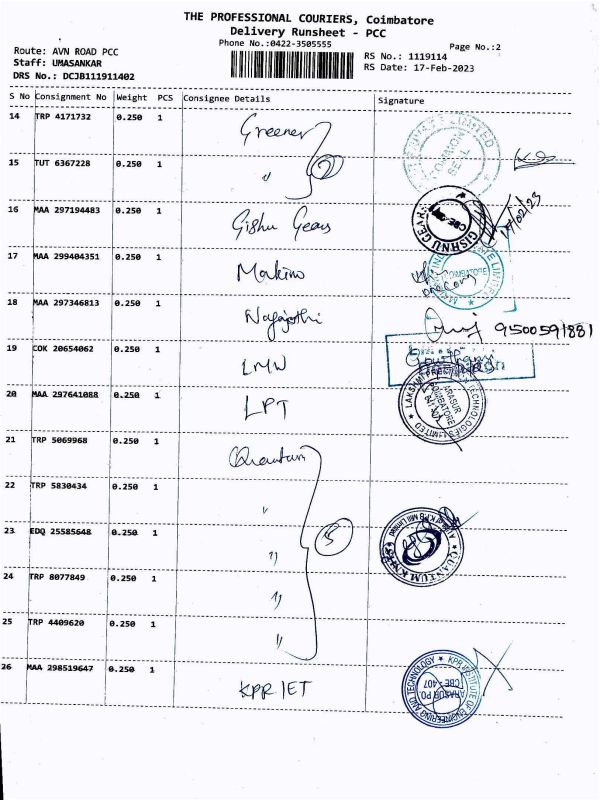 THE PROFESSIONAL COURIERS, Coimbatore
Delivery Runsheet - PCC
Phone No.:0422-3505555
Page No.:2
Route: AVN ROAD PCC
Staff: UMASANKAR
DRS No.: DCJB111911402
RS No.: 1119114
RS Date: 17-Feb-2023
S No Consignment No Weight PCS Consignee Details Signature
14 TRP 4171732 0.250 1 Greener
COMMON SEAL
15 TUT 6367228 0.250 1 " 2
16 MAA 297194483 0.250 1 Gishnu Gears
GISHNU GEARS
17/02/23
17 MAA 299404351 0.250 1 Makino
COIMBATORE
18 MAA 297346813 0.250 1 Nagajothi
9500591881
19 COK 20654062 0.250 1 LMW
20 MAA 297641088 0.250 1 LPT
LAKSHMI PRECISION TECHNOLOGIES LIMITED
ARASUR
COIMBATORE
21 TRP 5069968 0.250 1 Quantum
22 TRP 5830434 0.250 1 "
23 EDQ 25585648 0.250 1 " 5
QUANTUM KNITS
24 TRP 8077849 0.250 1 "
25 TRP 4409620 0.250 1 "
26 MAA 298519647 0.250 1 KPRIET
KPR INSTITUTE OF ENGINEERING AND TECHNOLOGY
ARASUR PO.
CBE - 407